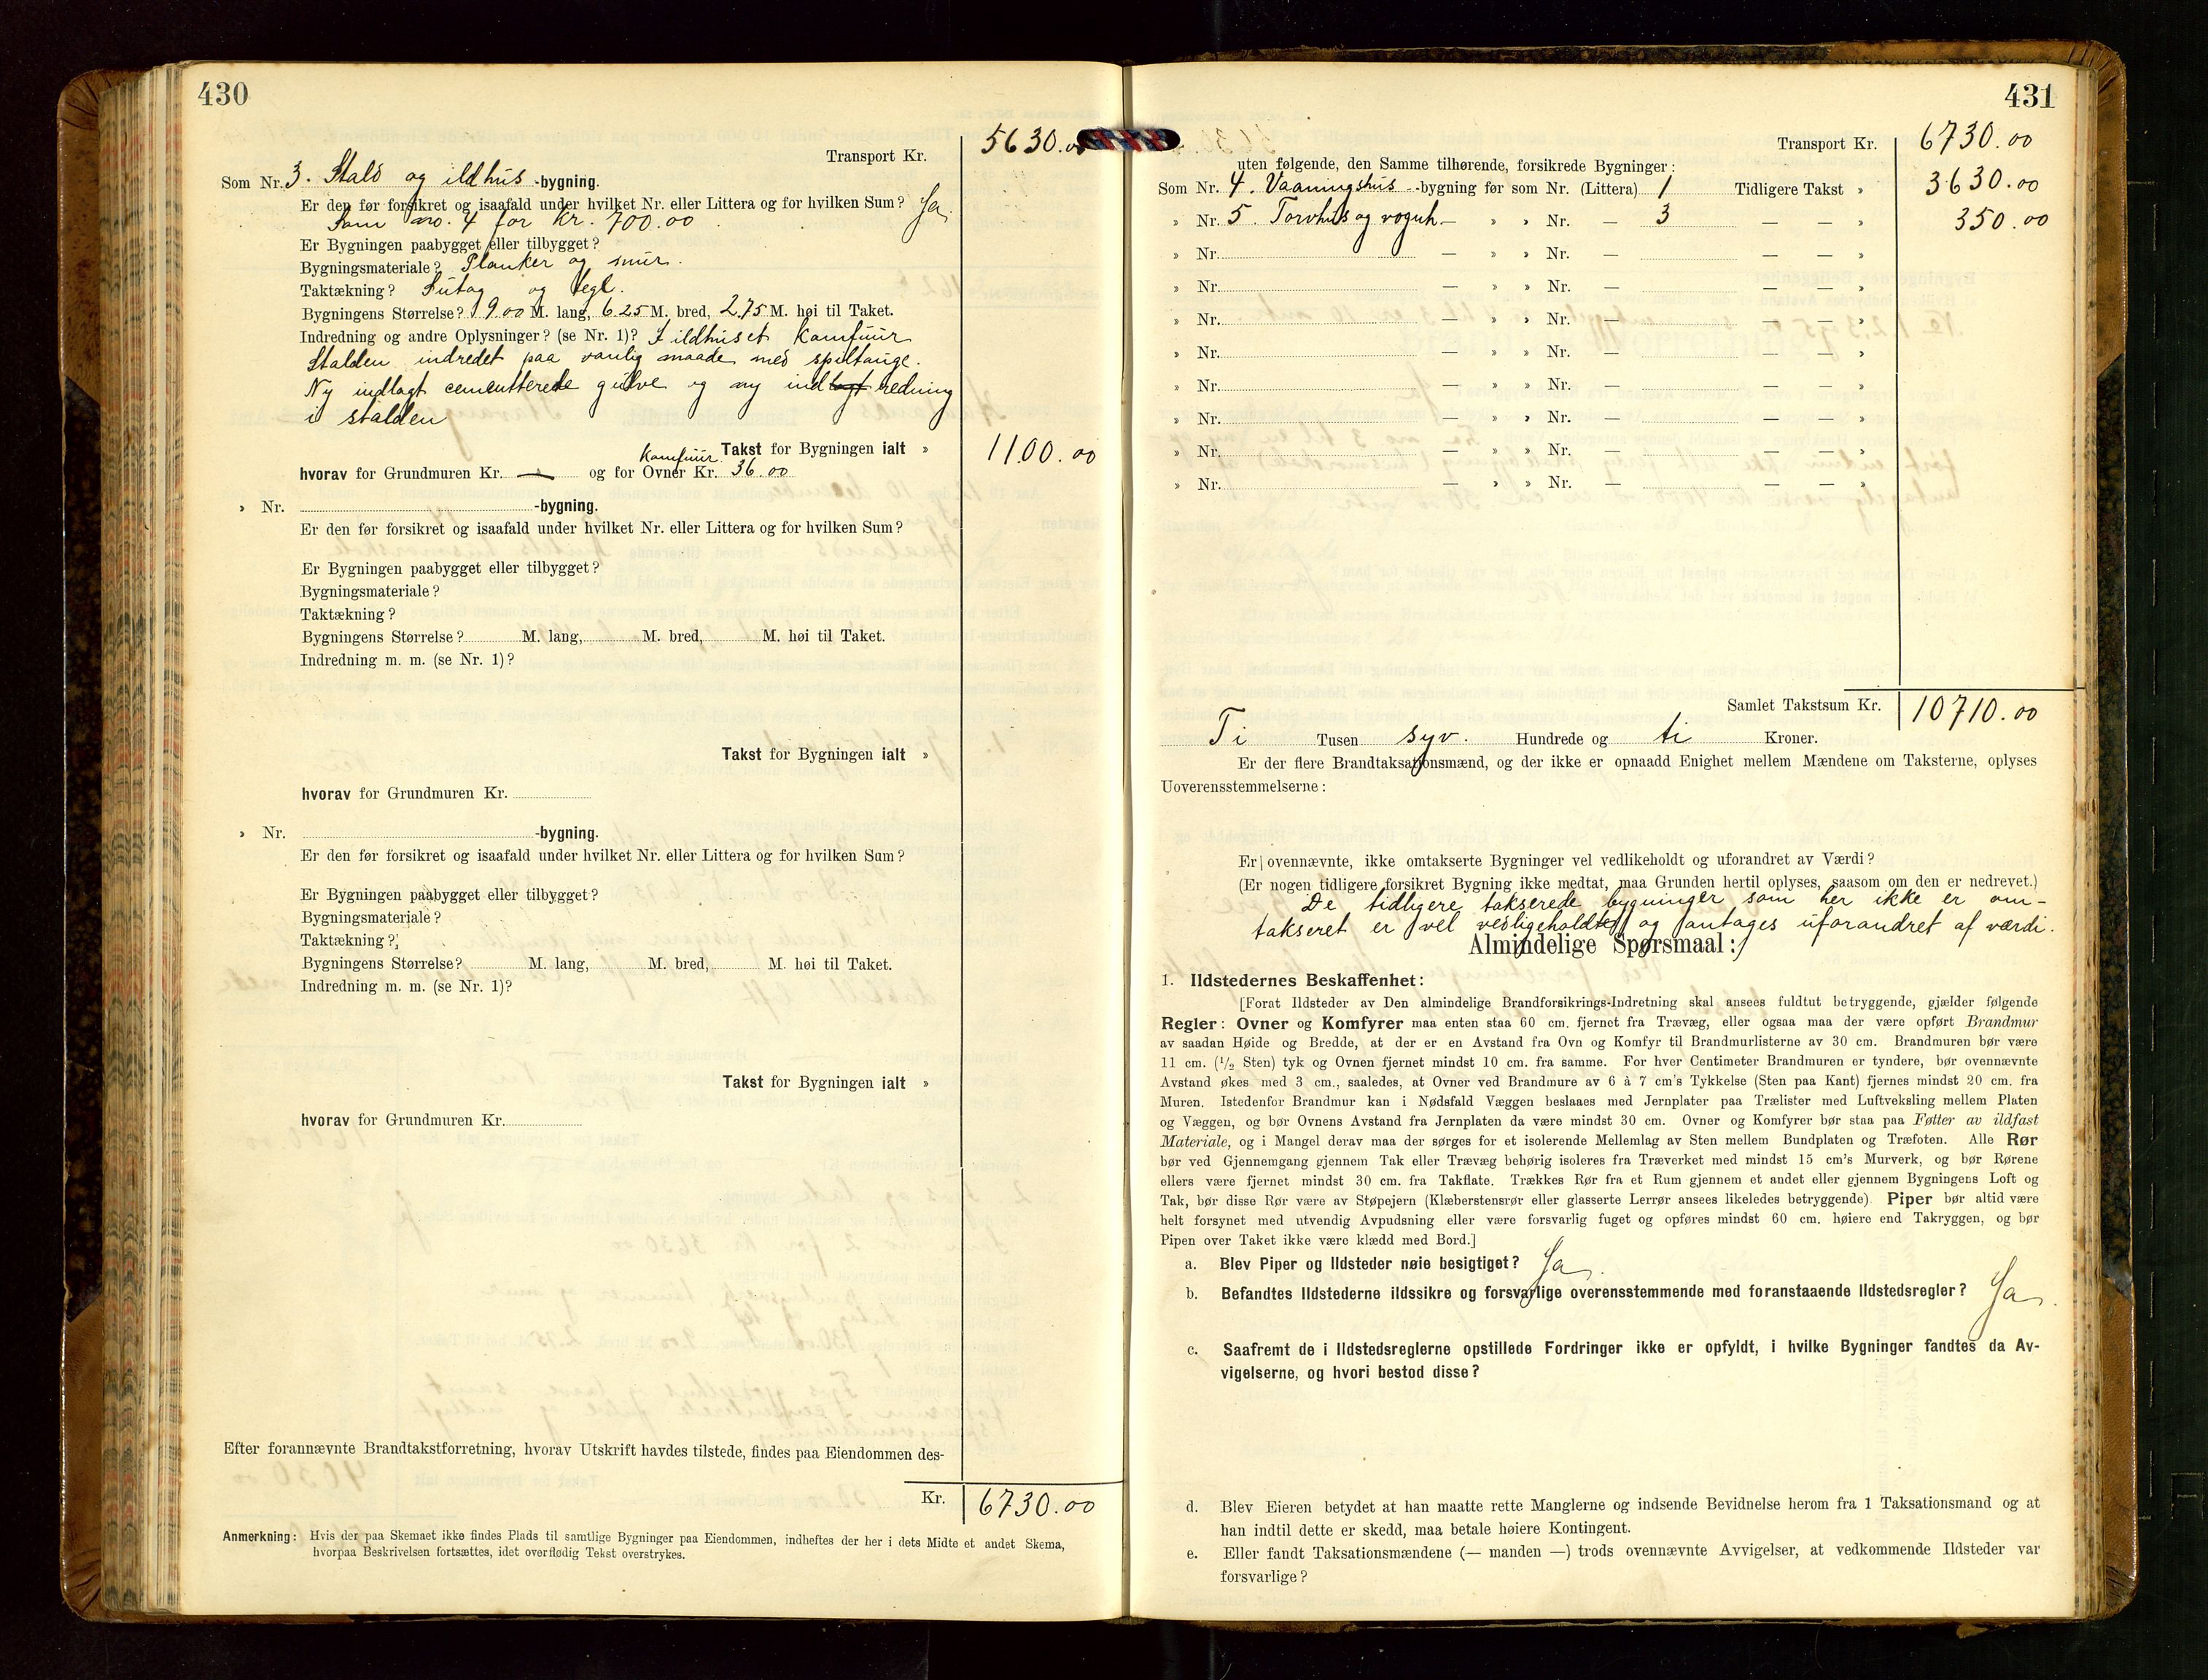 430
Transport Kr. 5630.00
Som Nr. 3. Stald og ildhus -bygning.
Er den før forsikret og isaafald under hvilket Nr. eller Littera og for hvilken Sum? Ja
Som no. 4 for Kr. 700.00
Er Bygningen paabygget eller tilbygget?
Bygningsmateriale? Planker og mur.
Taktækning? Sutag og tegl.
Bygningens Størrelse? 19.00 M. lang, 6.25 M. bred, 2.75 M. høi til Taket.
Indredning og andre Oplysninger? (se Nr. 1)? I ildhuset Komfuur
Stalden indredet paa vanlig maade med spiltauge.
Ny indlagt cementterede gulve og ny indlagt redning
i stalden
Takst for Bygningen ialt » 1100.00
Komfuur
hvorav for Grundmuren Kr. — og for Ovner Kr. 36.00
» Nr. -bygning.
Er den før forsikret og isaafald under hvilket Nr. eller Littera og for hvilken Sum?
Er Bygningen paabygget eller tilbygget?
Bygningsmateriale?
Taktækning?
Bygningens Størrelse? M. lang, M. bred, M. høi til Taket.
Indredning m. m. (se Nr. 1)?
Takst for Bygningen ialt »
hvorav for Grundmuren Kr.
» Nr. -bygning.
Er den før forsikret og isaafald under hvilket Nr. eller Littera og for hvilken Sum?
Er Bygningen paabygget eller tilbygget?
Bygningsmateriale?
Taktækning?
Bygningens Størrelse? M. lang, M. bred, M. høi til Taket.
Indredning m. m. (se Nr. 1)?
Takst for Bygningen ialt »
hvorav for Grundmuren Kr.
Efter forannævnte Brandtakstforretning, hvorav Utskrift havdes tilstede, findes paa Eiendommen des-
Kr. 6730.00
Anmerkning: Hvis der paa Skemaet ikke findes Plads til samtlige Bygninger paa Eiendommen, indheftes der her i dets Midte et andet Skema,
hvorpaa Beskrivelsen fortsættes, idet overflødig Tekst overstrykes.
431
Transport Kr. 6730.00
uten følgende, den Samme tilhørende, forsikrede Bygninger:
Som Nr. 4. Vaaningshus -bygning før som Nr. (Littera) 1 Tidligere Takst » 3630.00
» Nr. 5. Torvhus og vognh — » » Nr. — 3 — — » 350.00
» Nr. — » » Nr. — — — »
» Nr. — » » Nr. — — — »
» Nr. — » » Nr. — — — »
» Nr. — » » Nr. — — — »
» Nr. — » » Nr. — — — »
» Nr. — » » Nr. — — — »
» Nr. — » » Nr. — — — »
» Nr. — » » Nr. — — — »
Samlet Takstsum Kr. 10710.00
Ti Tusen syv. Hundrede og ti Kroner.
Er der flere Brandtaksationsmænd, og der ikke er opnaadd Enighet mellem Mændene om Taksterne, oplyses
Uoverensstemmelserne:
Er ovennævnte, ikke omtakserte Bygninger vel vedlikeholdt og uforandret av Værdi?
(Er nogen tidligere forsikret Bygning ikke medtat, maa Grunden hertil oplyses, saasom om den er nedrevet.)
De tidligere takserede bygninger som her ikke er om-
takseret er vel vedligeholdte og antages uforandret af værdi.
Almindelige Spørsmaal:
1. Ildstedernes Beskaffenhet:
[Forat Ildsteder av Den almindelige Brandforsikrings-Indretning skal ansees fuldtut betryggende, gjælder følgende
Regler: Ovner og Komfyrer maa enten staa 60 cm. fjernet fra Trævæg, eller ogsaa maa der være opført Brandmur
av saadan Høide og Bredde, at der er en Avstand fra Ovn og Komfyr til Brandmurlisterne av 30 cm. Brandmuren bør være
11 cm. (1/2 Sten) tyk og Ovnen fjernet mindst 10 cm. fra samme. For hver Centimeter Brandmuren er tyndere, bør ovennævnte
Avstand økes med 3 cm., saaledes, at Ovner ved Brandmure av 6 à 7 cm's Tykkelse (Sten paa Kant) fjernes mindst 20 cm. fra
Muren. Istedenfor Brandmur kan i Nødsfald Væggen beslaaes med Jernplater paa Trælister med Luftveksling mellem Platen
og Væggen, og bør Ovnens Avstand fra Jernplaten da være mindst 30 cm. Ovner og Komfyrer bør staa paa Føtter av ildfast
Materiale, og i Mangel derav maa der sørges for et isolerende Mellemlag av Sten mellem Bundplaten og Træfoten. Alle Rør
bør ved Gjennemgang gjennem Tak eller Trævæg behørig isoleres fra Træverket med mindst 15 cm's Murverk, og bør Rørene
ellers være fjernet mindst 30 cm. fra Takflate. Trækkes Rør fra et Rum gjennem et andet eller gjennem Bygningens Loft og
Tak, bør disse Rør være av Støpejern (Klæberstensrør eller glasserte Lerrør ansees likeledes betryggende). Piper bør altid være
helt forsynet med utvendig Avpudsning eller være forsvarlig fuget og opføres mindst 60 cm. høiere end Takryggen, og bør
Pipen over Taket ikke være klædd med Bord.]
a. Blev Piper og Ildsteder nøie besigtiget? Ja.
b. Befandtes Ildstederne ildssikre og forsvarlige overensstemmende med foranstaaende Ildstedsregler? Ja.
c. Saafremt de i Ildstedsreglerne opstillede Fordringer ikke er opfyldt, i hvilke Bygninger fandtes da Av-
vigelserne, og hvori bestod disse?
d. Blev Eieren betydet at han maatte rette Manglerne og indsende Bevidnelse herom fra 1 Taksationsmand og at
han indtil dette er skedd, maa betale høiere Kontingent.
e. Eller fandt Taksationsmændene (— manden —) trods ovennævnte Avvigelser, at vedkommende Ildsteder var
forsvarlige?